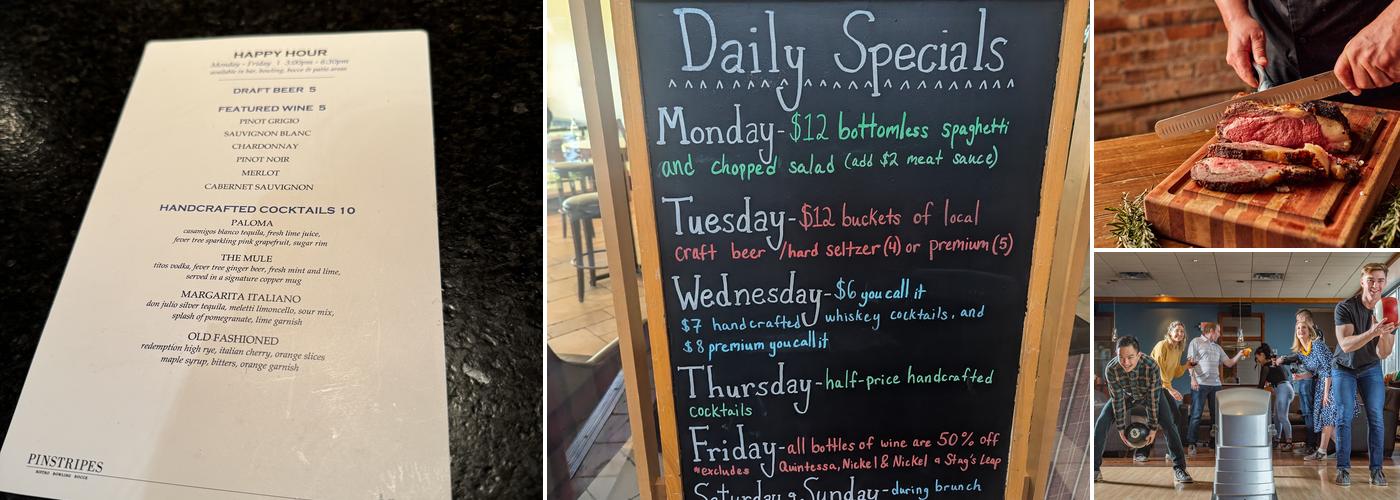 HAPPY HOUR
Monday - Friday | 3:00pm - 6:30pm
available in bar, bowling, bocce & patio areas
DRAFT BEER 5
FEATURED WINE 5
PINOT GRIGIO
SAUVIGNON BLANC
CHARDONNAY
PINOT NOIR
MERLOT
CABERNET SAUVIGNON
HANDCRAFTED COCKTAILS 10
PALOMA
casamigos blanco tequila, fresh lime juice,
fever tree sparkling pink grapefruit, sugar rim
THE MULE
titos vodka, fever tree ginger beer, fresh mint and lime,
served in a signature copper mug
MARGARITA ITALIANO
don julio silver tequila, meletti limoncello, sour mix,
splash of pomegranate, lime garnish
OLD FASHIONED
redemption high rye, italian cherry, orange slices
maple syrup, bitters, orange garnish
PINSTRIPES
BISTRO BOWLING BOCCE
Daily Specials
Monday-$12 bottomless spaghetti
and chopped salad (add $2 meat sauce)
Tuesday-$12 buckets of local
craft beer/hard seltzer (4) or premium (5)
Wednesday-$6 you call it
$7 handcrafted whiskey cocktails, and
$8 premium you call it
Thursday-half-price handcrafted
cocktails
Friday-all bottles of wine are 50% off
*excludes Quintessa, Nickel & Nickel & Stag's Leap
Saturday & Sunday-during brunch